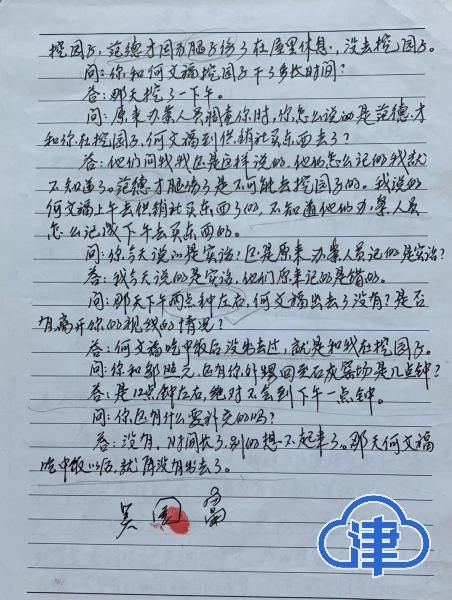 挖园子，范德才因为腿负伤了在屋里休息，没去挖园子。
问：你和何文福挖园子干了多长时间？
答：那天挖了一下午。
问：原来办案人员调查你时，你怎么说的是范德才
和你在挖园子，何文福到供销社买东西去了？
答：他们问我我还是这样说的，他们怎么记的我就
不知道了。范德才腿伤了是不可能去挖园子的。我说的
何文福上午去供销社买东西了的，不知道他们办案人员
怎么记成下午去买东西的。
问：你今天说的是实话？还是原来办案人员记的是实话？
答：我今天说的是实话，他们原来记的是错的。
问：那天下午两点钟左右，何文福出去了没有？是否
有离开你的视线的情况？
答：何文福吃中饭后没出去过，就是和我在挖园子。
问：你和邹照元，还有你外甥回至石灰窑场是几点钟？
答：是12点钟左右，绝对不会到下午一点钟。
问：你还有什么要补充的吗？
答：没有，时间长了，别的想不起来了。那天何文福
吃中饭以后，就再没有出去了。
津